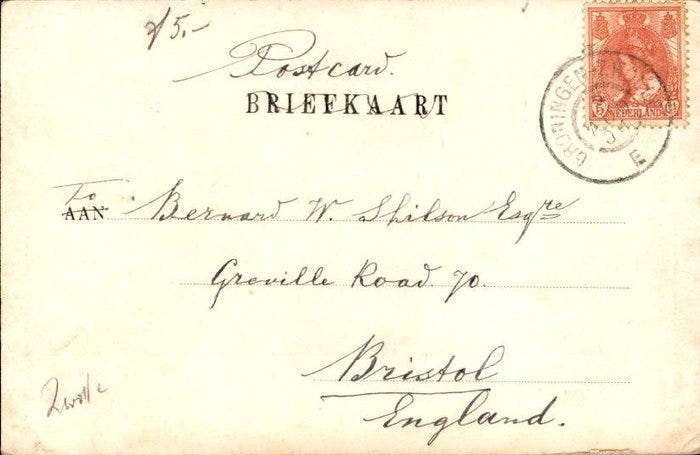 f 5.-
Postcard.
BRIEFKAART
To
AAN Bernard W. Shilson Esqre
Greville Road 70.
Bristol
England.
Zwolle
5 Ct
NEDERLAND
GRONINGEN